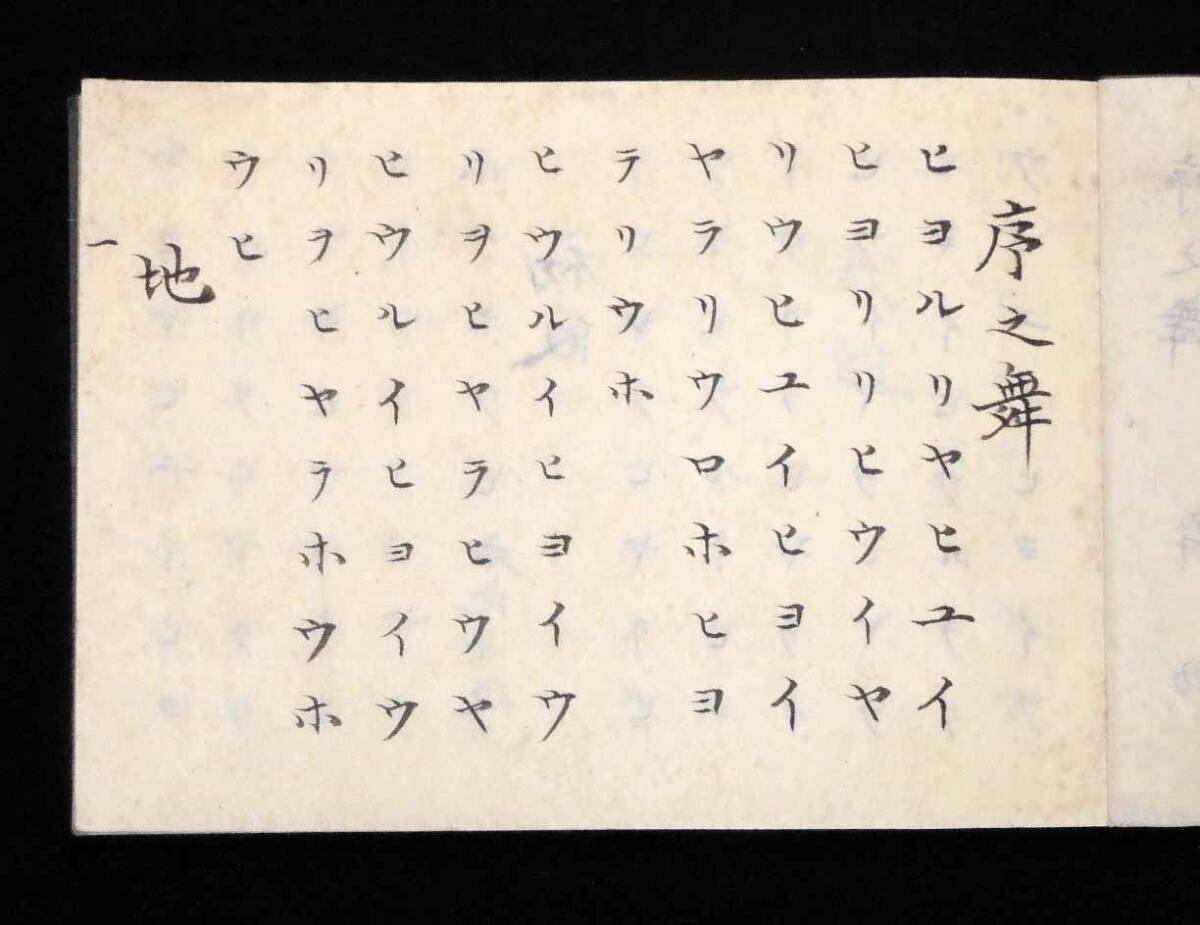 序之舞
ヒヨルリヤヒユイ
ヒヨリリヒウイヤ
リウヒユイヒヨイ
ヤラリウロホヒヨ
テリウホ
ヒウルイヒヨイウ
リヲヒヤラヒウヤ
ヒウルイヒヨイウ
リヲヒヤラホウホ
ウヒ
地
一